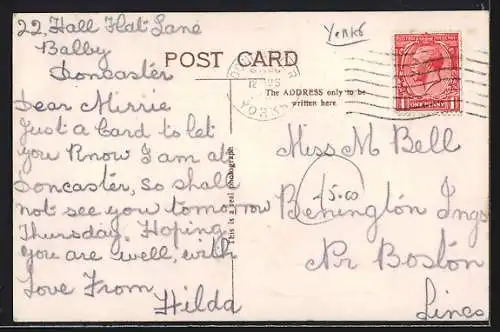 22, Hall Flat Lane
Balby
Doncaster
Yorks
POST CARD
12
YORKS
POSTAGE REVENUE
ONE PENNY
1 1
The ADDRESS only to be
written here.
Dear Mirrie
Just a Card to let
you Know I am at
Doncaster, so shall
not see you tomorrow
Thursday. Hoping
you are well, with
Love From
Hilda
This is a real photograph
Miss M Bell
5.00
Benington Ings
Nr Boston
Lincs